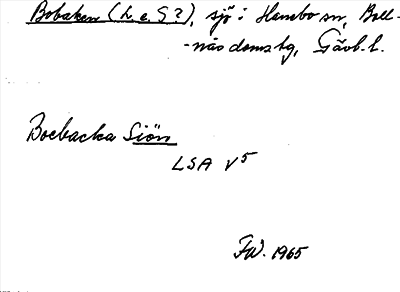 Bobaken (L. e. S?), sjö i Hanebo sn, Boll-
-näs domsag, Gävb. l.
Boebacka Siön
LSA V5
FW. 1965